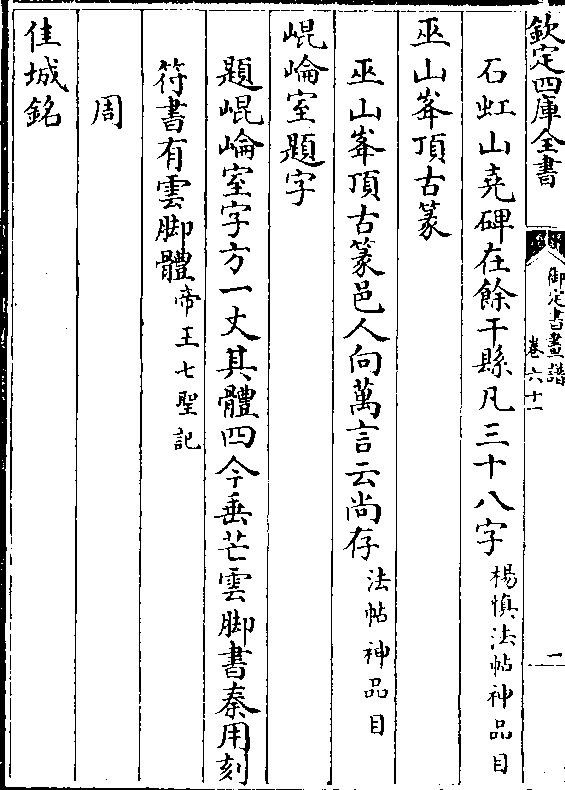 欽定四庫全書
御定書畫譜
卷六十一
一
石虹山堯碑在餘干縣凡三十八字楊慎法帖神品目
巫山峯頂古篆
巫山峯頂古篆邑人向萬言云尚存法帖神品目
崐崘室題字
題崐崘室字方一丈其體四今垂芒雲脚書秦用刻
符書有雲脚體帝王七聖記
周
佳城銘